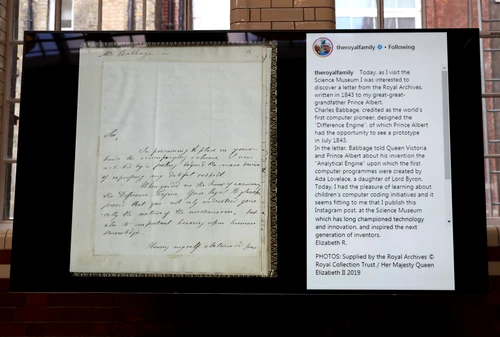 Mr Babbage
theroyalfamily • Following
theroyalfamily Today, as I visit the
Science Museum I was interested to
discover a letter from the Royal Archives,
written in 1843 to my great-great-
grandfather Prince Albert.
Charles Babbage, credited as the world's
first computer pioneer, designed the
"Difference Engine", of which Prince Albert
had the opportunity to see a prototype
in July 1843.
In the letter, Babbage told Queen Victoria
and Prince Albert about his invention the
"Analytical Engine" upon which the first
computer programmes were created by
Ada Lovelace, a daughter of Lord Byron.
Today, I had the pleasure of learning about
children's computer coding initiatives and it
seems fitting to me that I publish this
Instagram post, at the Science Museum
which has long championed technology
and innovation, and inspired the next
generation of inventors.
Elizabeth R.
PHOTOS: Supplied by the Royal Archives ©
Royal Collection Trust / Her Majesty Queen
Elizabeth II 2019
Sir,
In presuming to place in your
hands the accompanying volume I am
by a feeling beyond the mere
of expressing my respect.
When you did me the honor of examining
the Difference Engine Your Royal Highness
proved that you not only understood
the of the mechanism, but
also its important bearing upon human
knowledge.